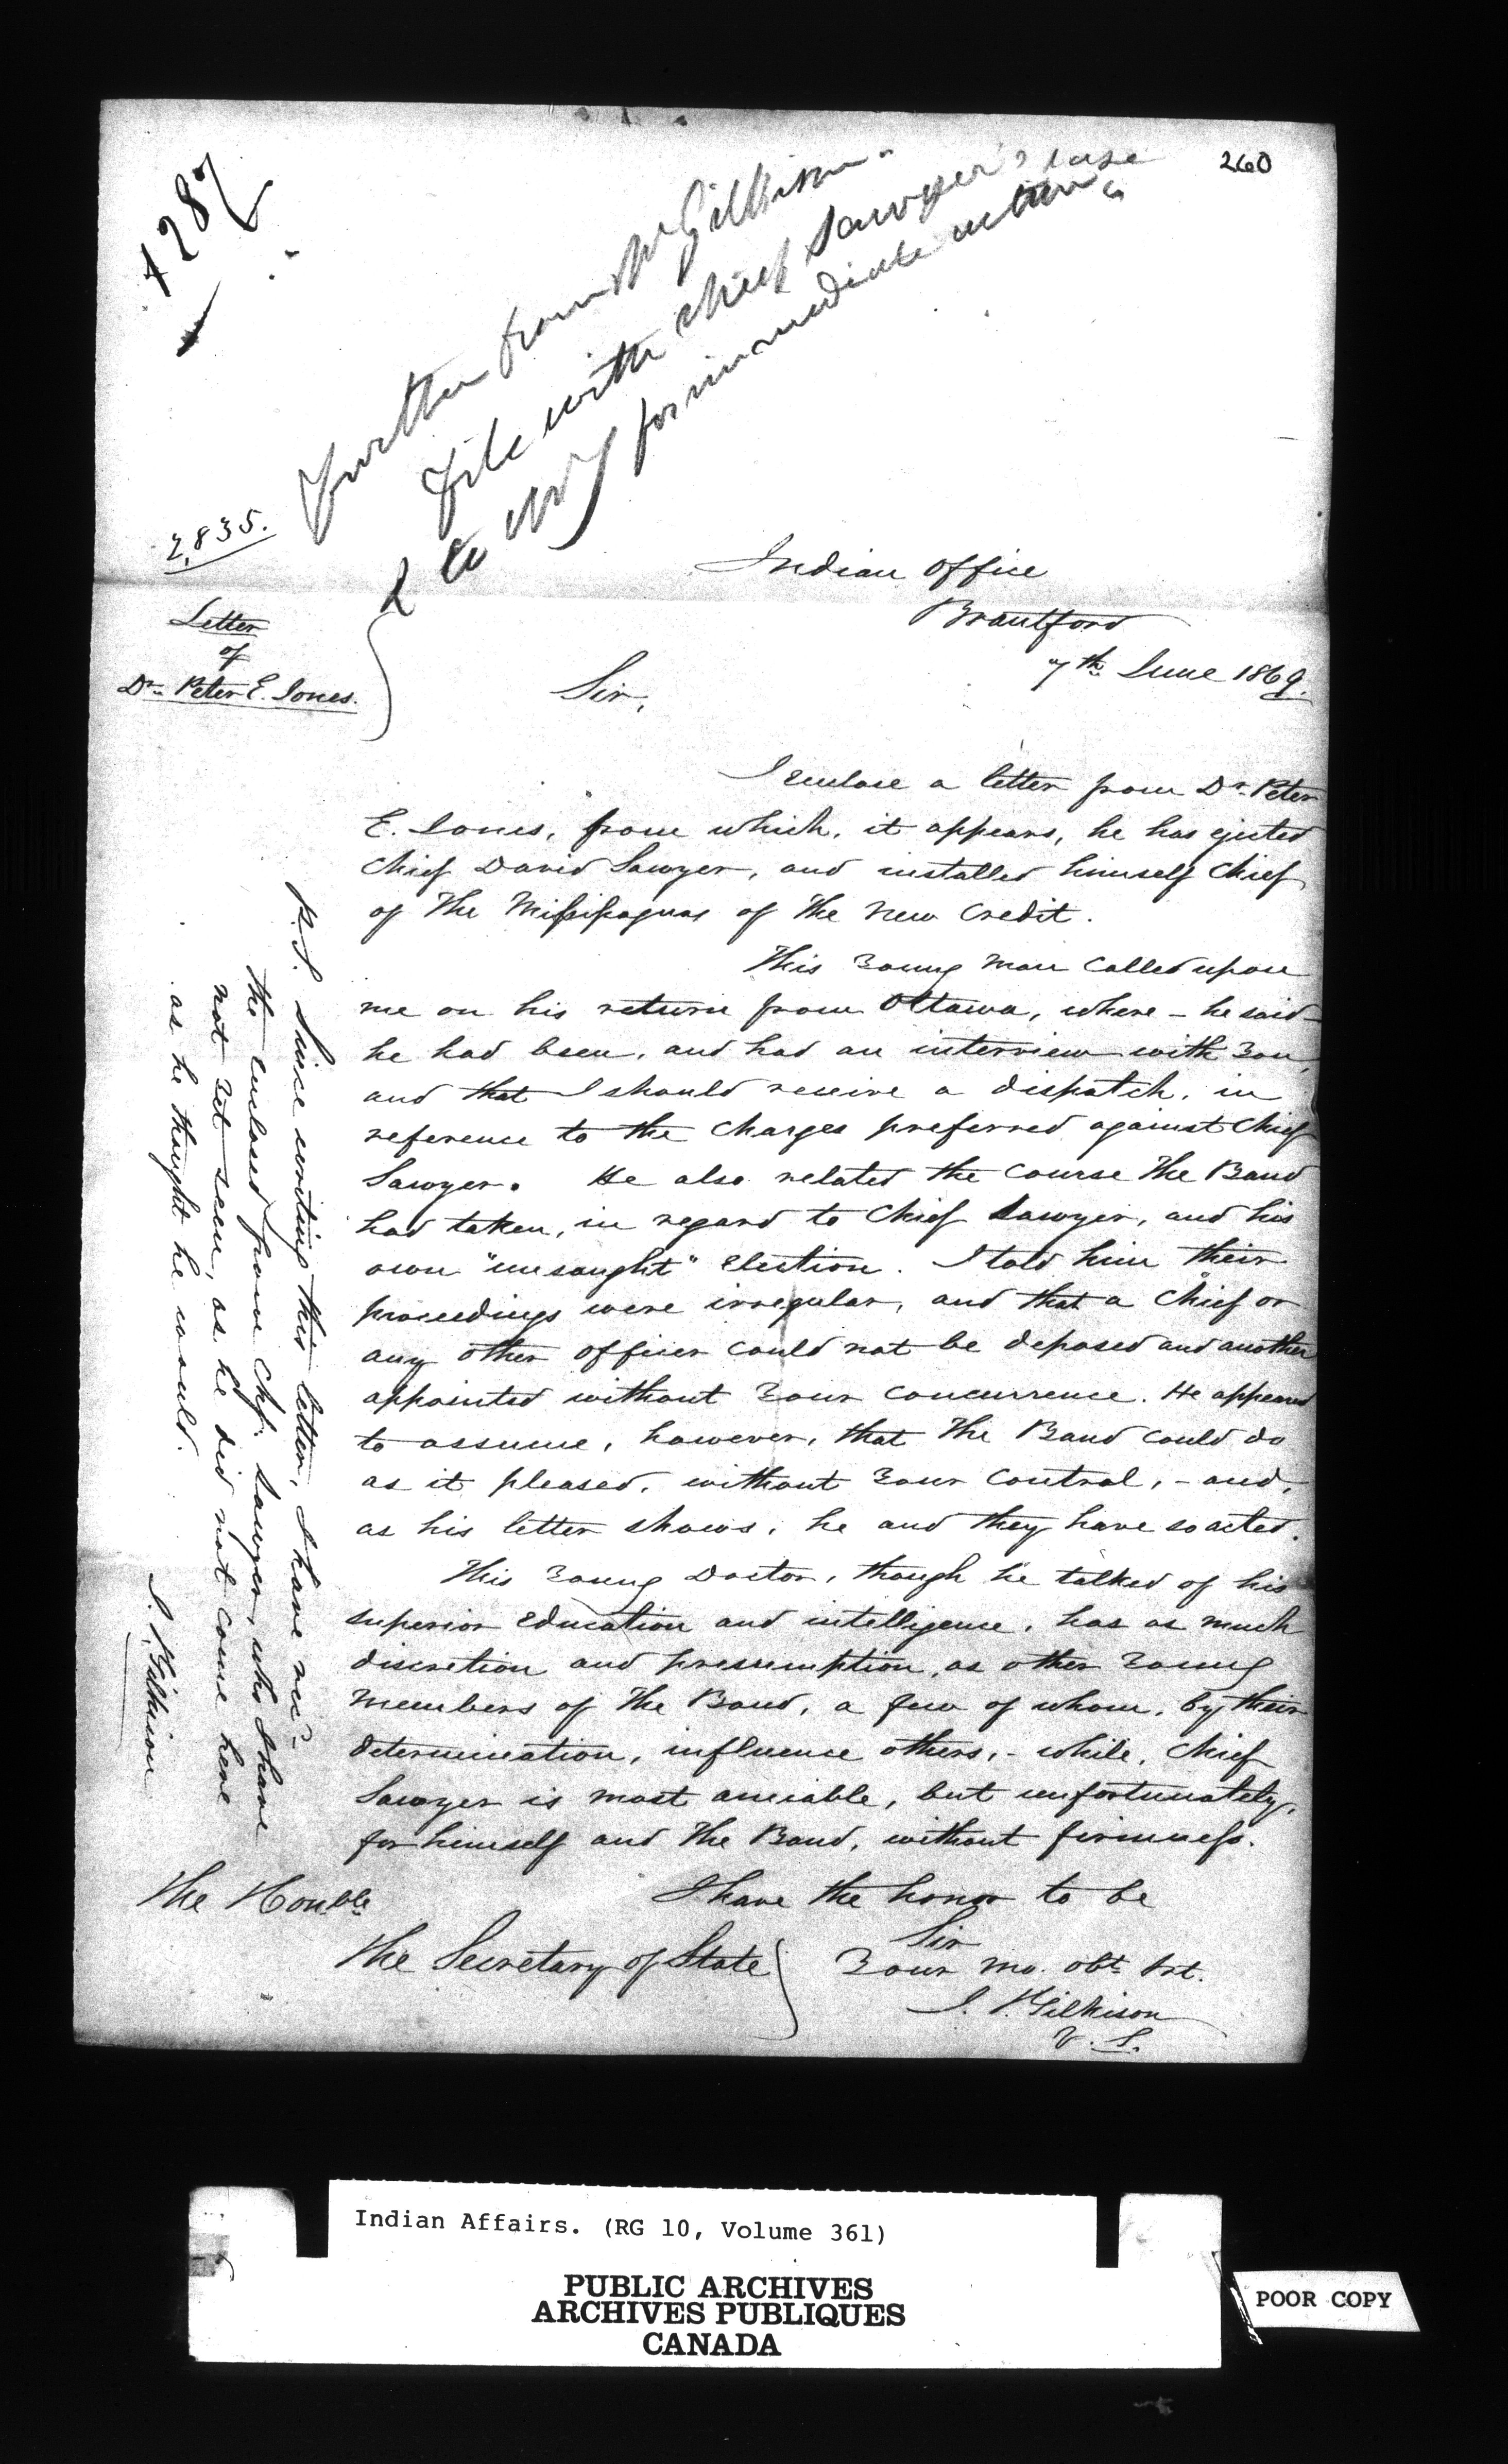 260
+287
Further from Mr Gilkison
File with Chief Sawyer's case
& to for immediate action
2,835.
Letter
of
Dr. Peter E. Jones.
Indian Office
Brantford
7th June 1869.
Sir,
I enclose a letter from Dr. Peter
E. Jones, from which, it appears, he has ejected
Chief David Sawyer, and installed himself Chief
of The Missisaguas of the New Credit.
This Young Man called upon
me on his return from Ottawa, where – he said –
he had been, and had an interview with You,
and that I should receive a dispatch, in
reference to the Charges preferred against Chief
Sawyer. He also related the course The Band
had taken, in regard to Chief Sawyer, and his
own "unsought" Election. I told him their
proceedings were irregular, and that a Chief or
any other officer could not be deposed and another
appointed without Your concurrence. He appeared
to assume, however, that The Band could do
as it pleased, without Your Control, – and,
as his letter shows, he and they have so acted.
This Young Doctor, though he talked of his
superior Education and intelligence, has as much
discretion and presumption, as other Young
Members of The Band, a few of whom, by their
determination, influence others, – while, Chief
Sawyer is most amiable, but unfortunately,
for himself and The Band, without firmness.
I have the honor to be
Sir
Your mo. obt. Svt.
J. Gilkison
V. S.
The Honble.
The Secretary of State
P.S. Since writing this letter, I have recd.
the enclosed from Chf. Sawyer, who I have
not yet seen, as he did not come here
as he thought he would.
J. Gilkison
Indian Affairs. (RG 10, Volume 361)
PUBLIC ARCHIVES
ARCHIVES PUBLIQUES
CANADA
POOR COPY